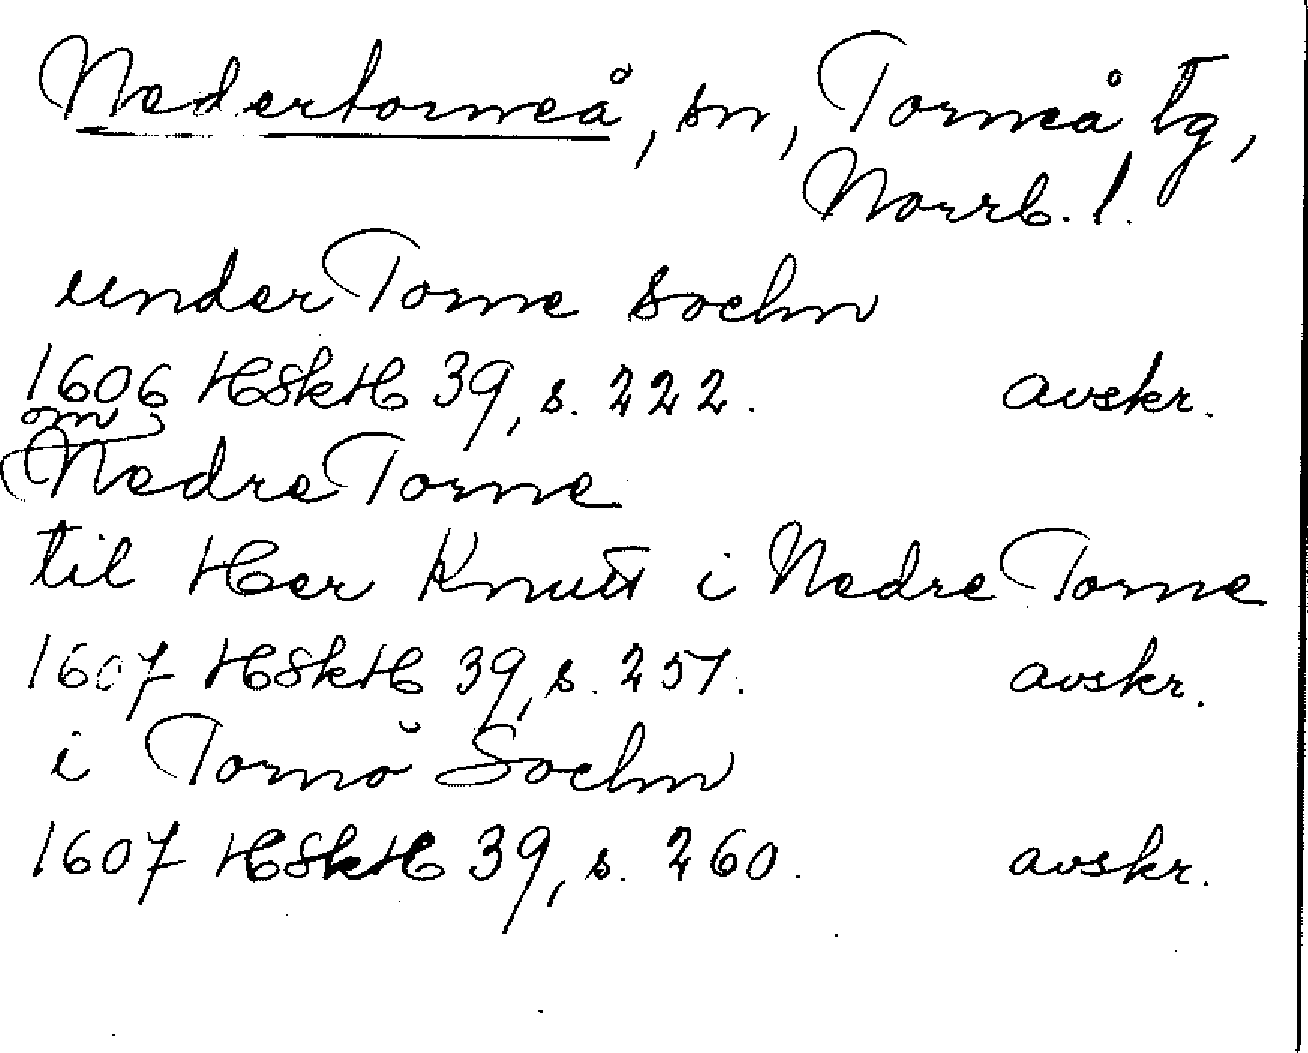 Nedertorneå, sn, Torneå tg,
Norrb. l.
under Torne sochn
1606 HSkH 39, s. 222. avskr.
om
Nedre Torne
til Her Knutt i Nedre Torne
1607 HSkH 39, s. 257. avskr.
i Tornö Sochn
1607 HSkH 39, s. 260. avskr.